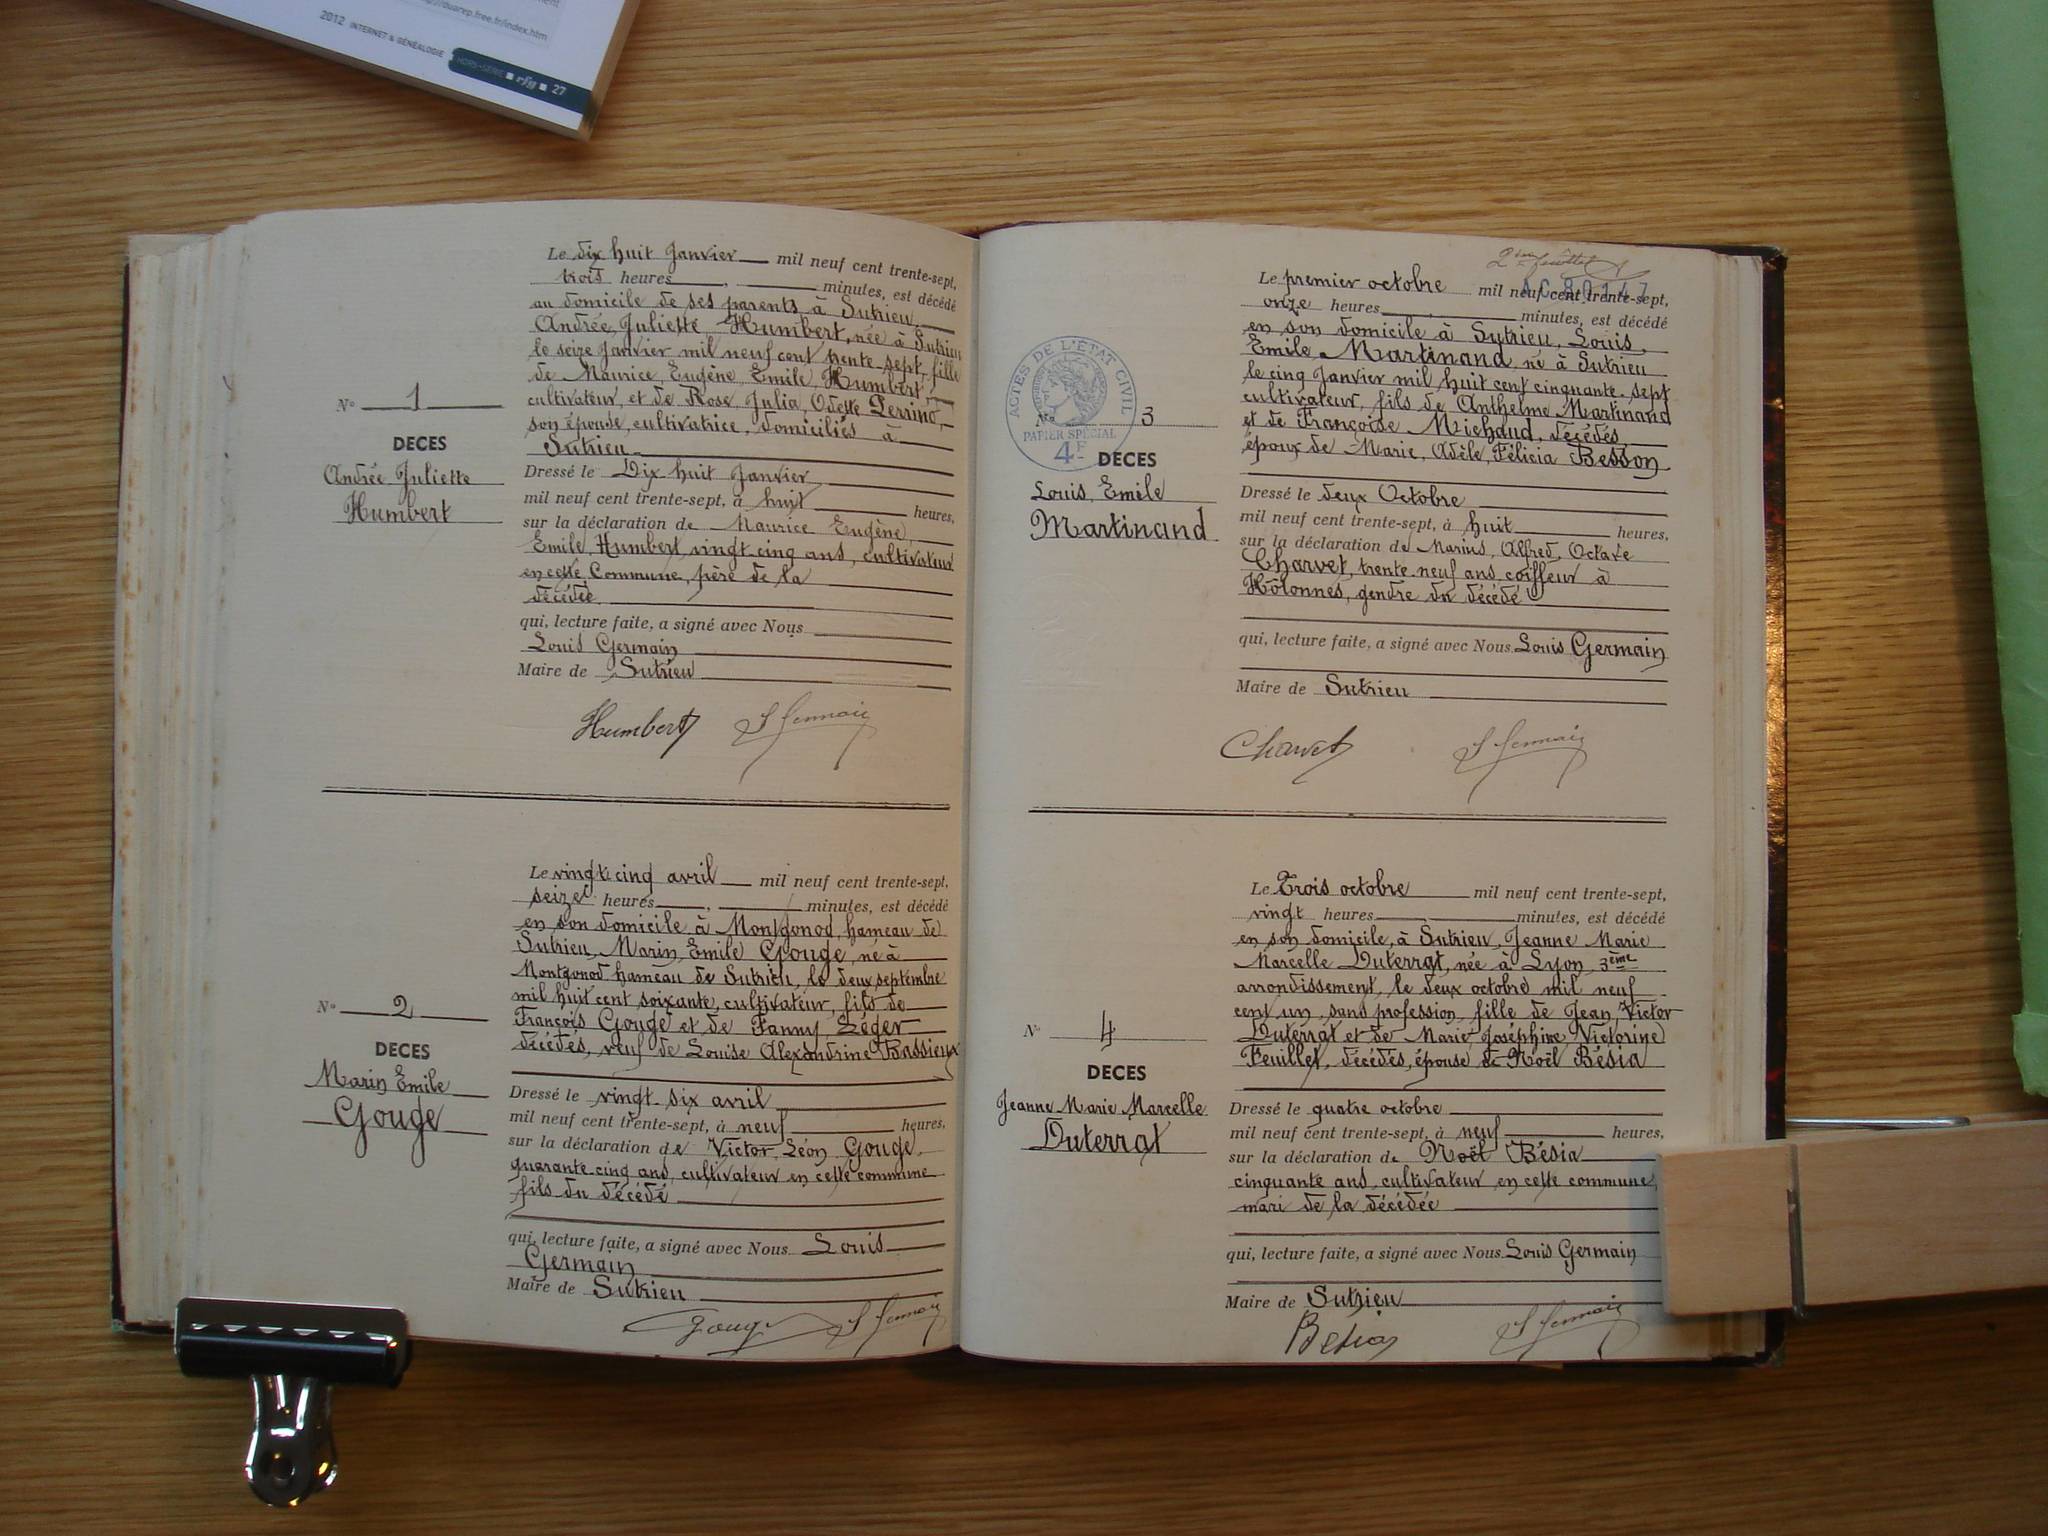 http://duarep.free.fr/index.htm
2012 INTERNET & GÉNÉALOGIE HORS-SÉRIE rfg 27
Le dix huit Janvier mil neuf cent trente-sept,
trois heures, minutes, est décédé
au domicile de ses parents à Sutrieu
Andrée, Juliette Humbert, née à Sutrieu
le seize Janvier mil neuf cent trente-sept, fille
de Maurice, Eugène, Emile Humbert,
cultivateur, et de Rose, Julia, Odette Perrino,
son épouse, cultivatrice, domiciliés à
Sutrieu
N° 1
DECES
Andrée Juliette
Humbert
Dressé le Dix huit Janvier
mil neuf cent trente-sept, à huit heures,
sur la déclaration de Maurice Eugène,
Emile, Humbert, vingt cinq ans, cultivateur
en cette Commune, père de la
décédée
qui, lecture faite, a signé avec Nous
Louis Germain
Maire de Sutrieu
Humbert L Germain
Le vingt cinq avril mil neuf cent trente-sept,
seize heures, minutes, est décédé
en son domicile à Montgonod, hameau de
Sutrieu, Marin, Emile Gouge, né à
Montgonod hameau de Sutrieu, le deux septembre
mil huit cent soixante, cultivateur, fils de
François Gouge et de Fanny Léger
décédés, veuf de Louise Alexandrine Bassieux
N° 2
DECES
Marin Emile
Gouge
Dressé le vingt-six avril
mil neuf cent trente-sept, à neuf heures,
sur la déclaration de Victor Léon Gouge,
quarante-cinq ans, cultivateur en cette commune
fils du décédé
qui, lecture faite, a signé avec Nous Louis
Germain
Maire de Sutrieu
Gouge L Germain
2ème feuillet
AC 80147
Le premier octobre mil neuf cent trente-sept,
onze heures minutes, est décédé
en son domicile à Sutrieu, Louis,
Emile Martinand, né à Sutrieu
le cinq Janvier mil huit cent cinquante-sept
cultivateur, fils de Anthelme Martinand
et de Françoise Michaud, décédés,
époux de Marie, Adèle, Félicia Besson
ACTES DE L'ÉTAT CIVIL
PAPIER SPÉCIAL
4F
N° 3
DECES
Louis, Emile
Martinand
Dressé le deux Octobre
mil neuf cent trente-sept, à huit heures,
sur la déclaration de Marius, Alfred, Octave
Charvet, trente-neuf ans, coiffeur à
Hôtonnes, gendre du décédé
qui, lecture faite, a signé avec Nous Louis Germain
Maire de Sutrieu
Charvet L Germain
Le Trois octobre mil neuf cent trente-sept,
vingt heures minutes, est décédé
en son domicile, à Sutrieu, Jeanne Marie
Marcelle Duterrat, née à Lyon 3ème
arrondissement, le deux octobre mil neuf
cent un, sans profession, fille de Jean Victor
Duterrat et de Marie Joséphine Victorine
Feuillet, décédés, épouse de Noël Bésia
N° 4
DECES
Jeanne Marie Marcelle
Duterrat
Dressé le quatre octobre
mil neuf cent trente-sept, à neuf heures,
sur la déclaration de Noël Bésia
cinquante ans, cultivateur en cette commune,
mari de la décédée
qui, lecture faite, a signé avec Nous Louis Germain
Maire de Sutrieu
Besia L Germain